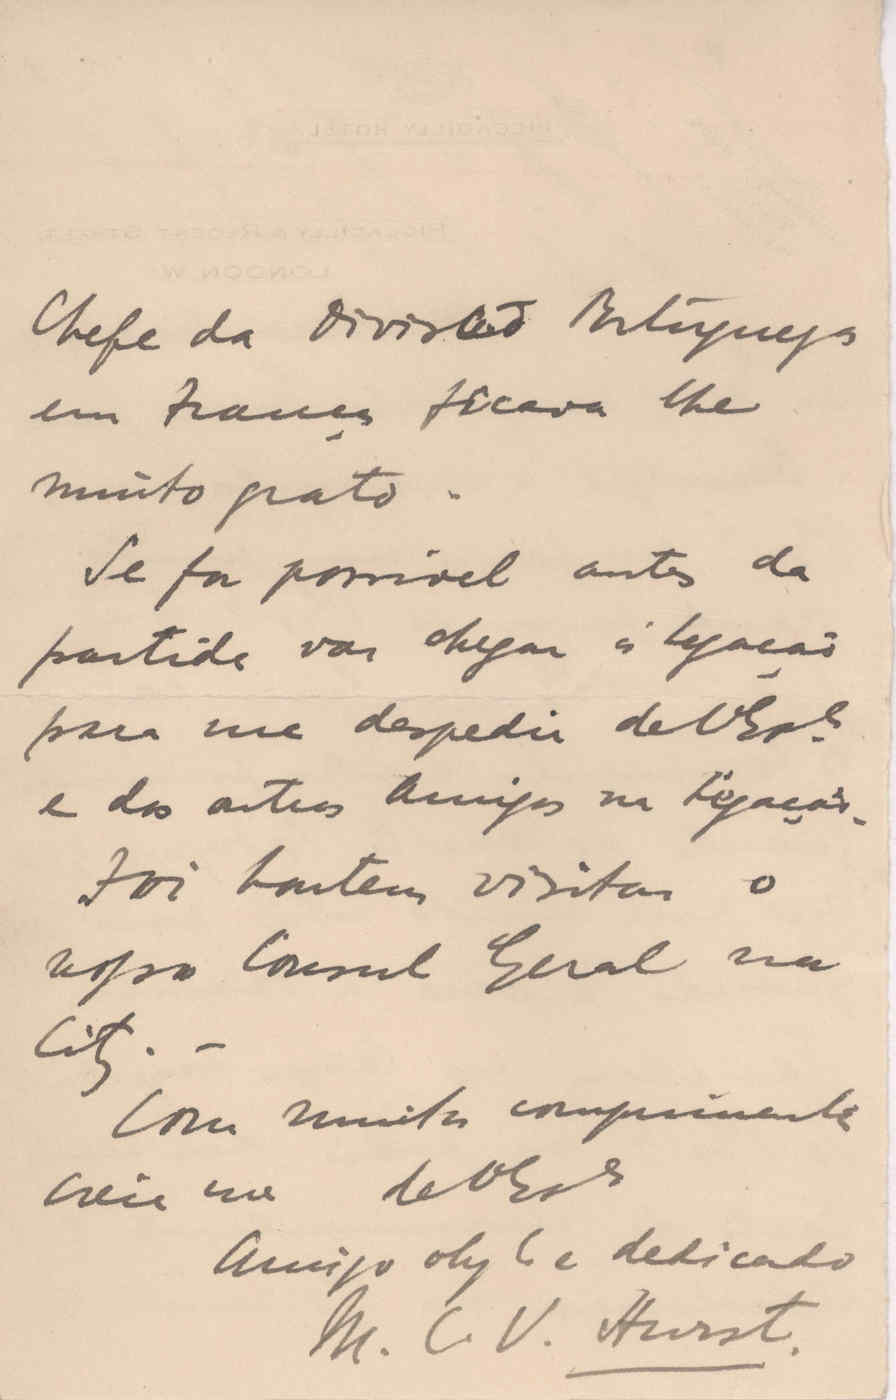 PICCADILLY HOTEL
PICCADILLY & REGENT STREET,
LONDON. W.
Chefe da Divisão Portugueza
em França ficava lhe
muito grato.
Se for possivel antes da
partida vou chegar á Legação
para me despedir de VExª
e dos outros Amigos na Legação.
Foi hontem visitar o
nosso Consul Geral na
City. -
Com muitos comprimentos
creia me de VExª
Amigo obgº e dedicado
M. C. V. Hurst.